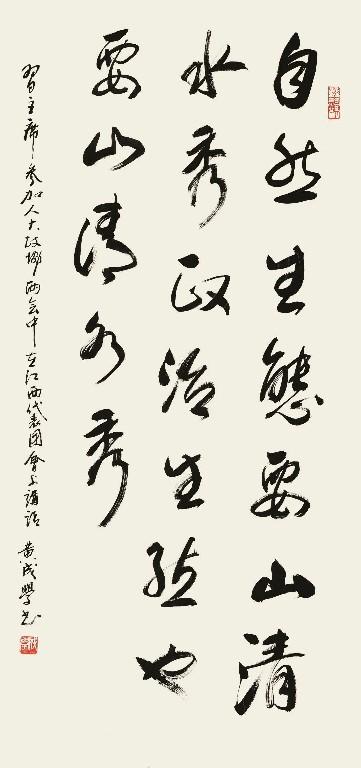 自然生態要山清
水秀政治生態也
要山清水秀
習主席参加人大政協两会中在江西代表團會上講話 黄成學书